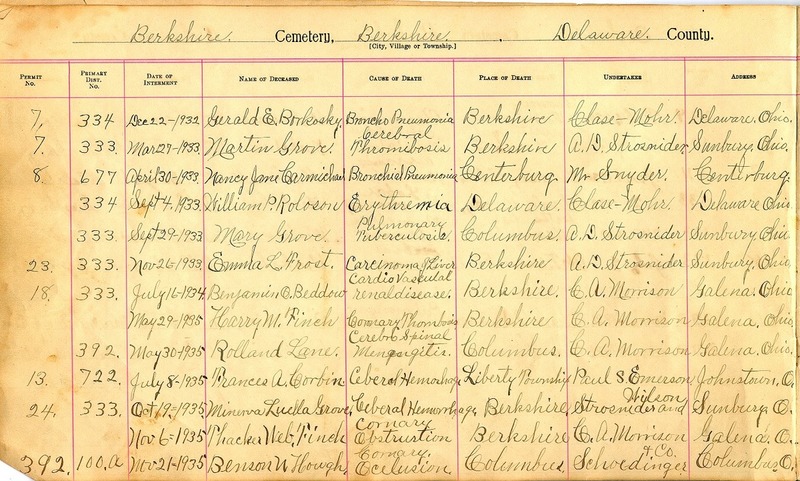 Berkshire. Cemetery, Berkshire. Delaware. County.
[City, Village or Township.]
PERMIT No. PRIMARY DIST. No. DATE OF INTERMENT NAME OF DECEASED CAUSE OF DEATH PLACE OF DEATH UNDERTAKER ADDRESS
7, 334 Dec 22-1932 Gerald E. Borkosky. Broncho Pneumonia Berkshire Clase-Mohr. Delaware. Ohio.
7. 333 Mar 27-1933 Martin Grove. Cerebral Thrombosis Berkshire A. D. Strosnider. Sunbury. Ohio.
8. 677 April 30-1933 Nancy Jane Carmichael Bronchial Pneumonia Centerburg. Mr. Snyder. Centerburg.
334 Sept 4.1933. William P. Roloson Erythremia Delaware. Clase-Mohr. Delaware Ohio
333 Sept 29-1933 Mary Grove. Pulmonary Tuberculosis. Columbus. A. D. Strosnider Sunbury. Ohio
23. 333. Nov 26-1933 Emma L. Frost. Carcinoma of Liver Berkshire A. D. Strosnider Sunbury. Ohio.
18. 333. July 16-1934 Benjamin O. Beddow Cardio Vascular renal disease. Berkshire. C. A. Morrison Galena. Ohio
May 29-1935 Harry M. Finch Coronary Thombosis Berkshire C. A. Morrison Galena, Ohio.
392. May 30-1935 Rolland Lane. Cerebro Spinal Mengegitis. Columbus. C. A. Morrison Galena, Ohio.
13. 722. July 8-1935 Frances A. Corbin Ceberal Hemorhage Liberty Township Paul S. Emerson Johnstown, O.
24. 333. Oct 19-1935 Luella Grove, Ceberal Hemorhage, Berkshire, Strosnider and Wilson Sunbury O.
Nov 6-1935 Thacker Web. Finch Comary Obstruction Berkshire C. A. Morrison Galena, O.
392. 100.a Nov 21-1935 Benson W. Hough. Comary. Ocelusion Columbus. Schoedinger & Co. Columbus. O.